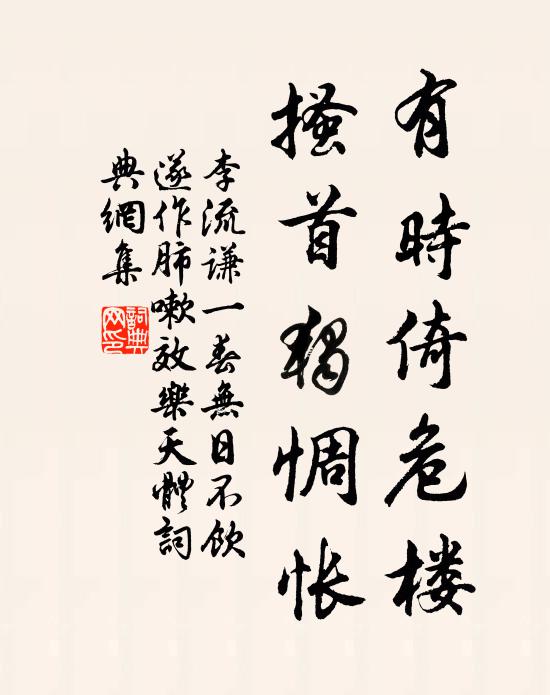 有時倚危楼
搔首独惆怅
李流谦一春無日不飲
遂作肺嗽效樂天體詞
典網集
詞典
网印